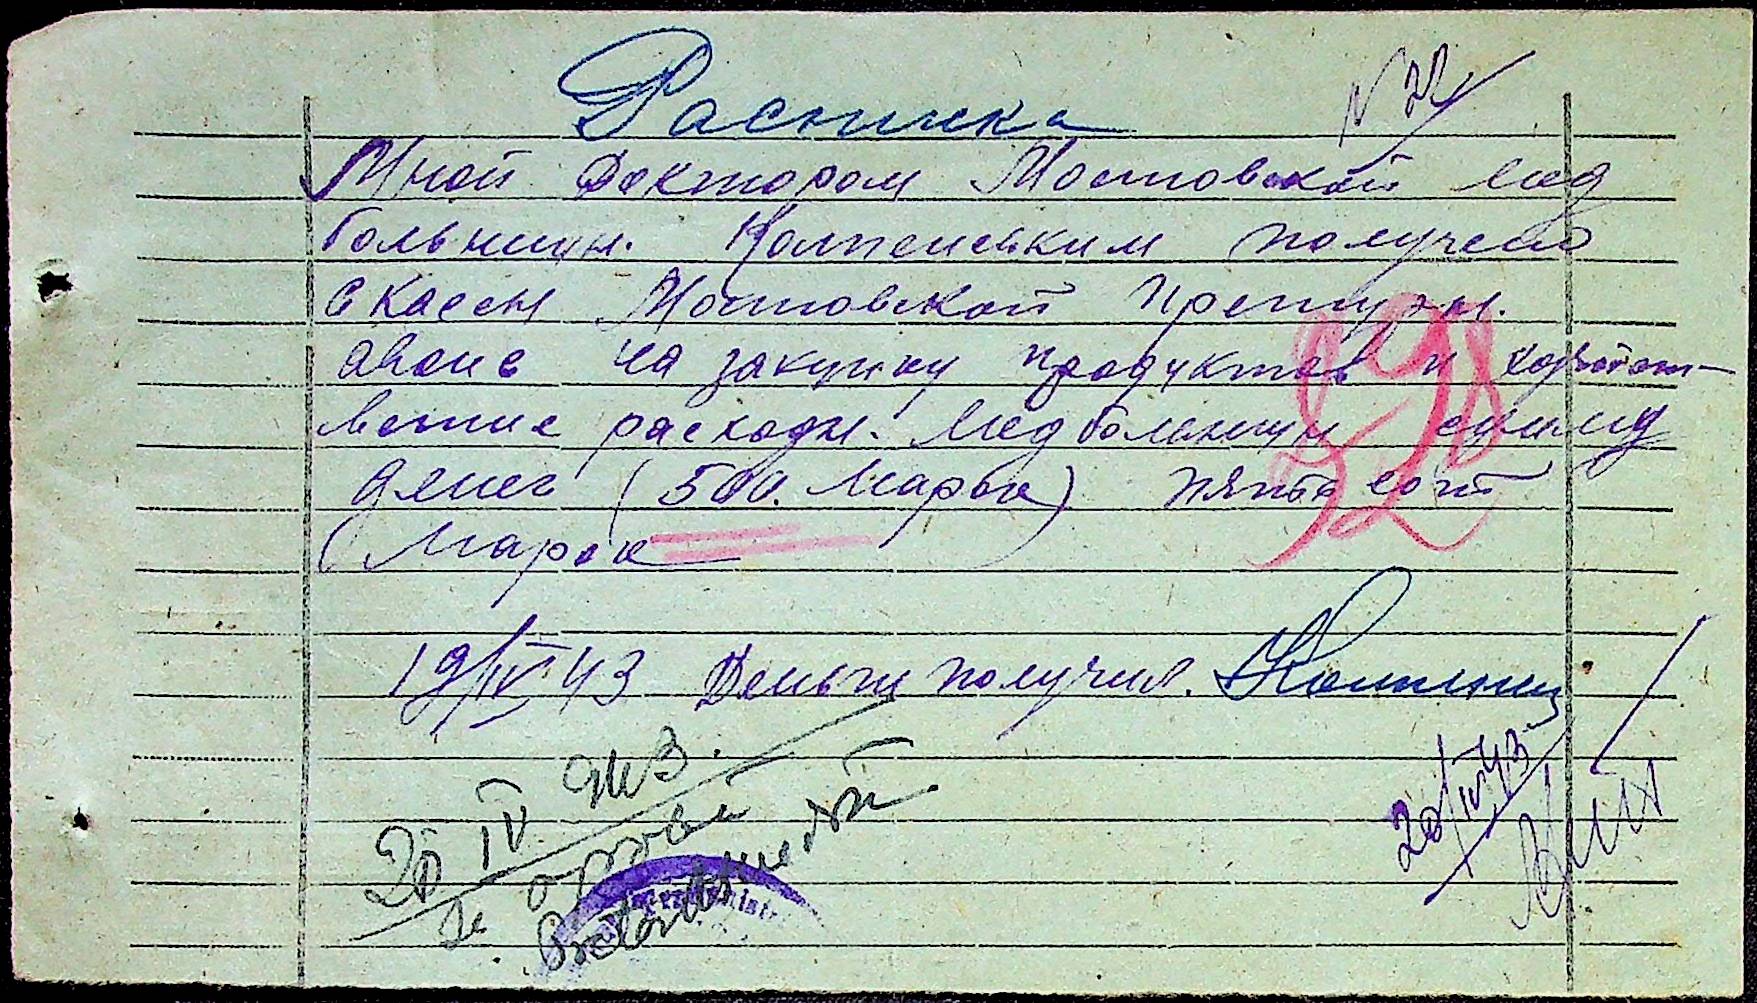 Расписка
N 22
Мной Доктором Мостовской мед
больницы. Колпенским получено
с кассы Мостовской Препуры.
аванс на закупку продуктов и хозяйст-
венние расходы. Медбольницы сумму
денег (500. Марок) пятьсот
(Марок
19/IV 43 Деньги получил.
20 IV 943.
20/IV 43